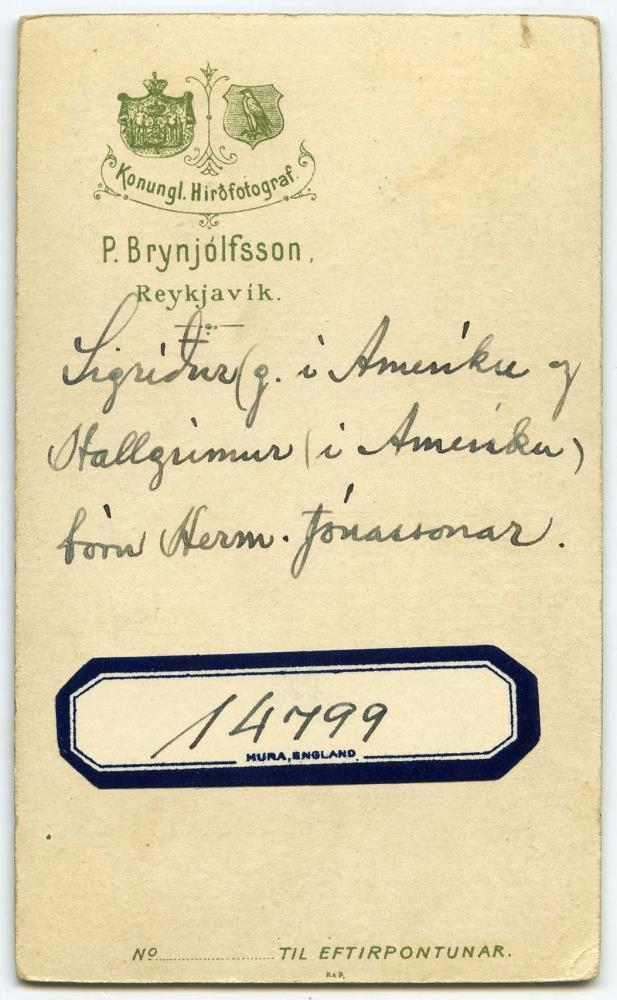 Konungl. Hirðfotograf.
P. Brynjólfsson,
Reykjavík.
Sigríður (g. i Ameríku og
Hallgrimur (i Ameriku)
börn Herm. Jónassonar.
14799
MURA, ENGLAND
No TIL EFTIRPONTUNAR.
K&P.